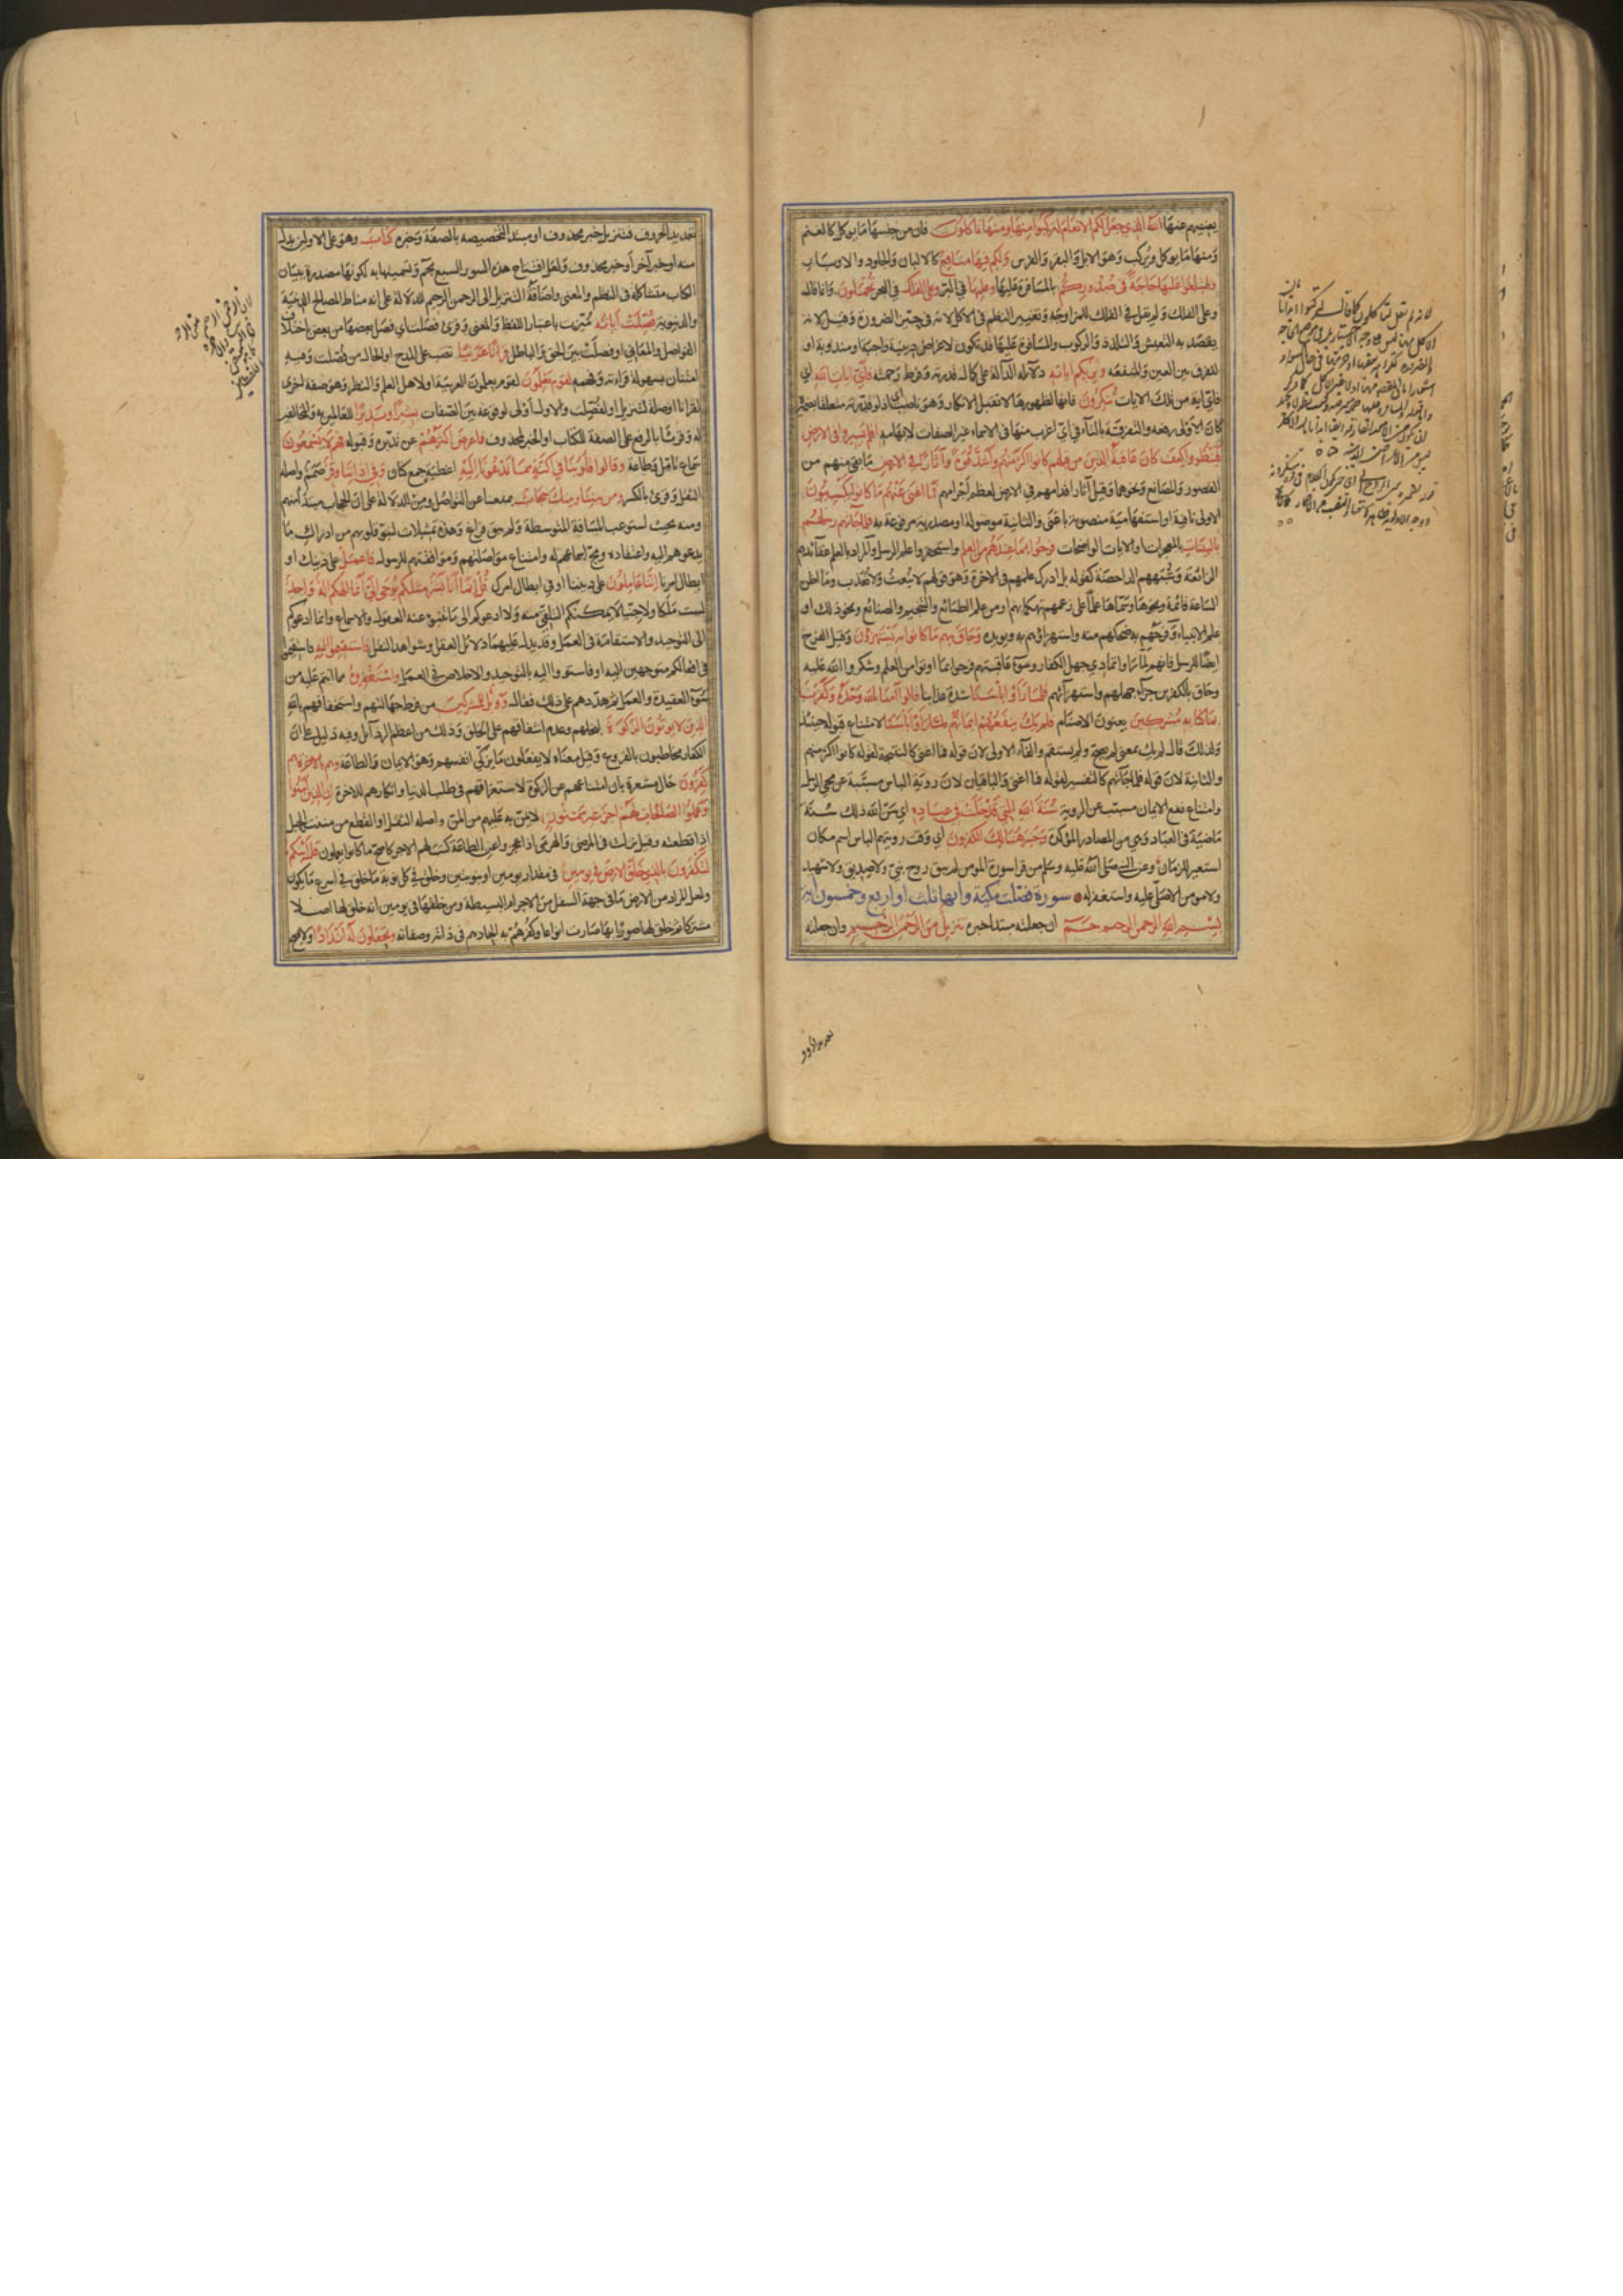 يعنيهم عنها الله الذي جعل لكم الانعام لتركبوا منها ومنها تاكلون فان من جنسها ما يوكل كالغنم
ومنها ما يوكل ويركب وهو الابل والبقر والفرس ولكم فيها منافع كالالبان والجلود والاوبار
ولتبلغوا عليها حاجة في صدوركم بالمسافرة عليها وعليها في البر وعلى الفلك في البحر تحملون وانما قال
وعلى الفلك ولم يقل في الفلك للمزاوجة وتغيير النظم في الاكل لانه في حيز الضرورة وقيل لانه
يقصد به التعيش والتلذذ والركوب والمسافرة عليها قد تكون لاغراض دينية واجبة او مندوبة او
للفرق بين العين والمنفعة ويريكم اياته دلائله الدالة على كمال قدرته وفرط رحمته فاي ايات الله اي
فاي اية من تلك الايات تنكرون فانها لظهورها لا تقبل الانكار وهو ناصب اي
كان الاولى رفعه والتفرقة بالتاء في اي اغرب منها في الاسماء غير الصفات لابهامه افلم يسيروا في الارض
فينظروا كيف كان عاقبة الذين من قبلهم كانوا اكثر منهم واشد قوة وآثارا في الارض ما بقي منهم من
القصور والمصانع ونحوهما وقيل آثار اقدامهم في الارض لعظم اجرامهم فما اغنى عنهم ما كانوا يكسبون
الاولى نافية او استفهامية منصوبة باغنى والثانية موصولة او مصدرية مرفوعة به فلما جاءتهم رسلهم
بالبينات بالمعجزات والايات الواضحات فرحوا بما عندهم من العلم واستحقروا علم الرسل والمراد بالعلم عقائدهم
الزائغة وشبههم الداحضة كقوله بل ادارك علمهم في الاخرة وهو قولهم لا نبعث ولا نعذب وما اظن
الساعة قائمة ونحوها وسماها علما على زعمهم تهكما بهم او من علم الطبائع والتنجيم والصنائع ونحو ذلك او
علم الانبياء وفرحهم به ضحكهم منه واستهزاؤهم به ويويده وحاق بهم ما كانوا به يستهزؤن وقيل الفرح
ايضا للرسل فانهم لما راوا تمادي جهل الكفار وسوء عاقبتهم فرحوا بما اوتوا من العلم وشكروا الله عليه
وحاق بالكفرين جزاء جهلهم واستهزائهم فلما راوا باسنا شدة عذابنا قالوا آمنا بالله وحده وكفرنا
بما كنا به مشركين يعنون الاصنام فلم يك ينفعهم ايمانهم لما راوا باسنا لامتناع قبوله حينئذ
ولذلك قال لم يك بمعنى لم يصح ولم يستقم والفاء الاولى لان قوله فما اغنى كالنتيجة لقوله كانوا اكثر منهم
والثانية لان قوله فلما جاءتهم كالتفسير لقوله فما اغنى والباقيان لان روية الباس مسببة عن مجي الرسل
وامتناع نفع الايمان مسبب عن الروية سنة الله التي قد خلت في عباده اي سن الله ذلك سنة
ماضية في العباد وهي من المصادر المؤكدة وخسر هنالك الكفرون اي وقت رويتهم الباس اسم مكان
استعير للزمان وعن النبي صلى الله عليه وسلم من قرا سورة المومن لم يبق روح نبي ولا صديق ولا شهيد
ولا مومن الا صلى عليه واستغفر له سورة فصلت مكية وايها ثلث او اربع وخمسون اية
بسم الله الرحمن الرحيم حم ان جعلته مبتدا خبره تنزيل من الرحمن الرحيم وان جعلته
تعديد الحروف فتنزيل خبر محذوف او مبتدا لتخصيصه بالصفة وخبره كتاب وهو على الاولين بدل
منه او خبر آخر او خبر محذوف ولعل افتتاح هذه السور السبع بحم وتسميتها به لكونها مصدرة ببيان
الكتاب متشاكلة في النظم والمعنى واضافة التنزيل الى الرحمن الرحيم للدلالة على انه مناط المصالح الدينية
والدنيوية فصلت آياته ميزت باعتبار اللفظ والمعنى وقرئ فصلت اي فصل بعضها من بعض باختلاف
الفواصل والمعاني او فصلت بين الحق والباطل قرانا عربيا نصب على المدح او الحال من فصلت وفيه
امتنان بسهولة قراءته وفهمه لقوم يعلمون لقوم يعلمون العربية او لاهل العلم والنظر وهو صفة اخرى
لقرانا او صلة لتنزيل او لفصلت والاول اولى لوقوعه بين الصفات بشيرا ونذيرا للعاملين به والمخالفين
له وقرئا بالرفع على الصفة للكتاب او الخبر لمحذوف فاعرض اكثرهم عن تدبره وقبوله فهم لا يسمعون
سماع تامل وطاعة وقالوا قلوبنا في اكنة مما تدعونا اليه اغطية جمع كنان وفي آذاننا وقر صمم واصله
الثقل وقرئ بالكسر ومن بيننا وبينك حجاب يمنعنا عن التواصل ومن للدلالة على ان الحجاب مبتدا منهم
ومنه بحيث استوعب المسافة المتوسطة ولم يبق فراغ وهذه تمثيلات لنبو قلوبهم عن ادراك ما
يدعوهم اليه واعتقاده ومج اسماعهم له وامتناع مواصلتهم وموافقتهم للرسول فاعمل على دينك او
ابطال امرنا اننا عاملون على ديننا او في ابطال امرك قل انما انا بشر مثلكم يوحى الي انما الهكم اله واحد
لست ملكا ولا جنيا لا يمكنكم التلقي منه ولا ادعوكم الى ما تنبو عنه العقول والاسماع وانما ادعوكم
الى التوحيد والاستقامة في العمل وقد يدل عليهما دلائل العقل وشواهد النقل فاستقيموا اليه فاستقيموا
في افعالكم متوجهين اليه او فاستووا اليه بالتوحيد والاخلاص في العمل واستغفروه مما انتم عليه من
سوء العقيدة والعمل ثم هددهم على ذلك فقال وويل للمشركين من فرط جهالتهم واستخفافهم بالله
الذين لا يوتون الزكوة لبخلهم وعدم اشفاقهم على الخلق وذلك من اعظم الرذائل وفيه دليل على ان
الكفار مخاطبون بالفروع وقيل معناه لا يفعلون ما يزكي انفسهم وهو الايمان والطاعة وهم بالاخرة هم
كفرون حال مشعرة بان امتناعهم عن الزكوة لاستغراقهم في طلب الدنيا وانكارهم للاخرة ان الذين آمنوا
وعملوا الصالحات لهم اجر غير ممنون لا يمن به عليهم من المن واصله الثقل او القطع من مننت الحبل
اذا قطعته وقيل نزلت في المرضى والهرمى اذا عجزوا عن الطاعة كتب لهم الاجر كاصح ما كانوا يعملون قل ائنكم
لتكفرون بالذي خلق الارض في يومين في مقدار يومين او بنوبتين وخلق في كل نوبة ما خلق في اسرع ما يكون
ولعل المراد من الارض ما في جهة السفل من الاجرام البسيطة ومن خلقها في يومين انه خلق لها اصلا
مشتركا ثم خلق لها صورا بها صارت انواعا وكفرهم به الحادهم في ذاته وصفاته وتجعلون له اندادا ولا يصح